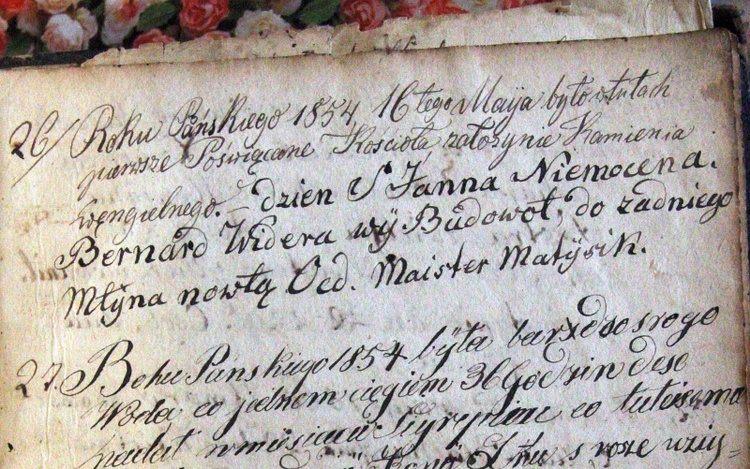 26/ Roku Pańskiego 1854 16tego Maija było wtutach
pierwsze Poświącane Kościoła założynie Kamienia
węngielnego. dzien S Janna Niemocena.
Bernard Widera wÿ Budowoł, do zadniego
Młÿna nowłą Ocd. Maister Matÿsik.
27. Roku Panskiego 1854 bÿła barzdso srogo
Woda co jednem ciegiem 36 Godzin desc
padał wmiesiacu co tuteisama
s rosze wziÿ=